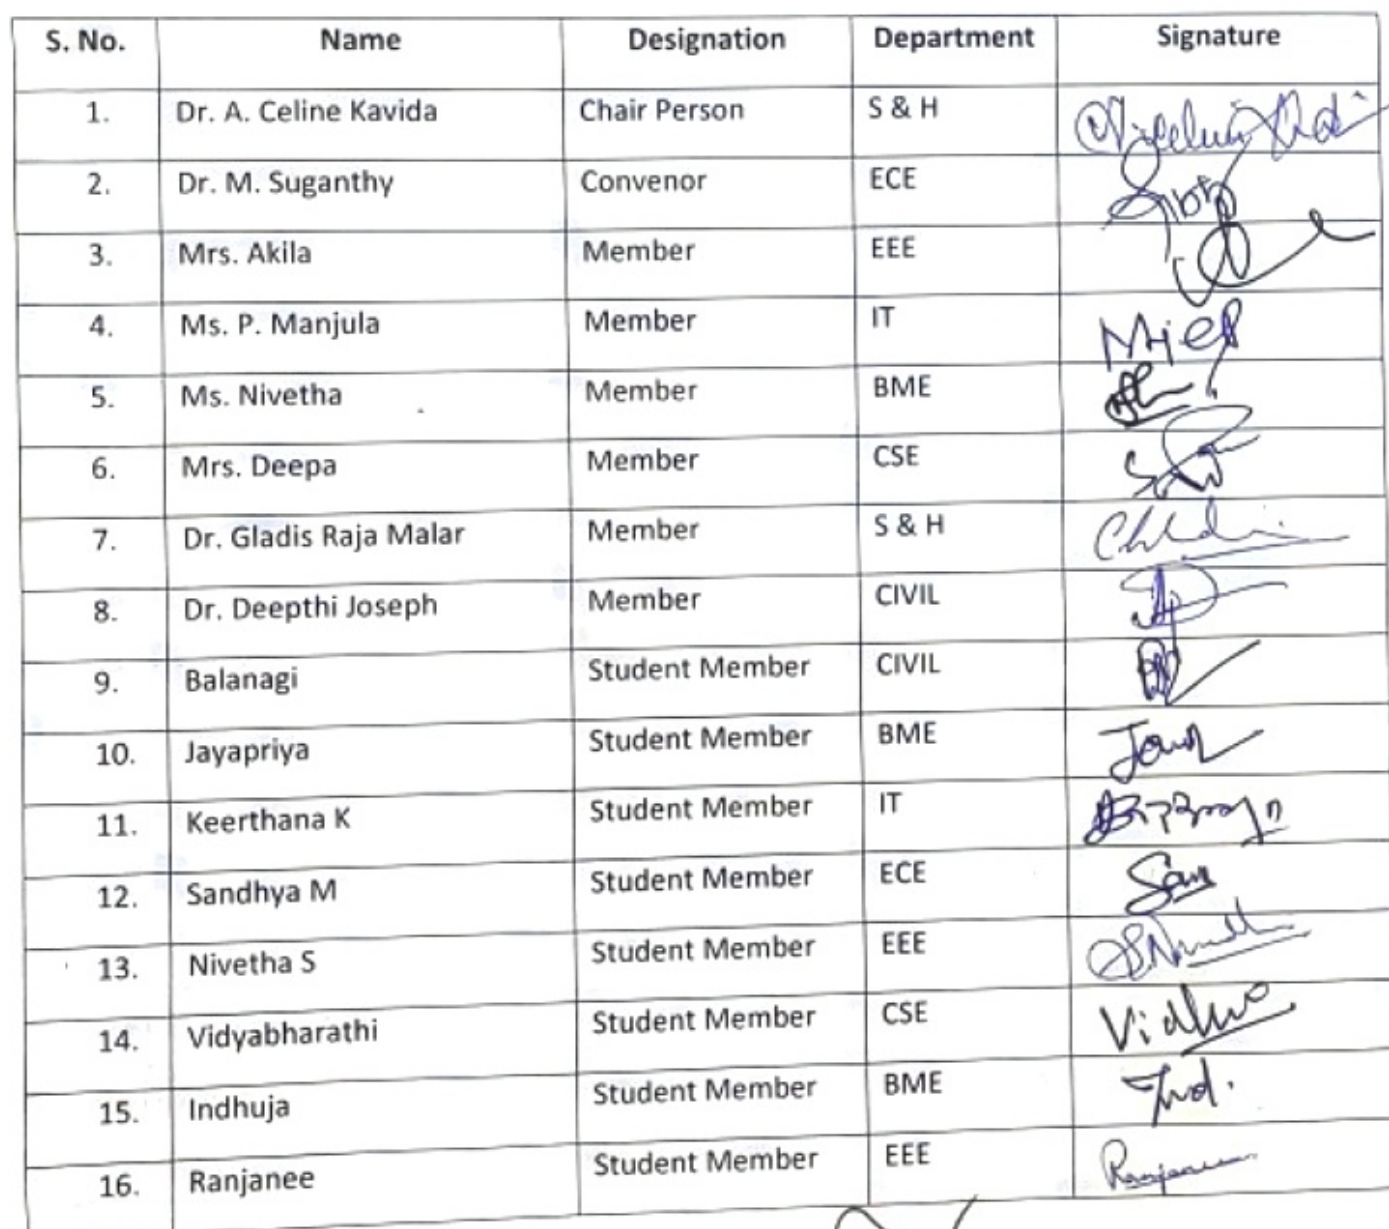 S. No. Name Designation Department Signature
1. Dr. A. Celine Kavida Chair Person S & H
2. Dr. M. Suganthy Convenor ECE
3. Mrs. Akila Member EEE
4. Ms. P. Manjula Member IT
5. Ms. Nivetha Member BME
6. Mrs. Deepa Member CSE
7. Dr. Gladis Raja Malar Member S & H
8. Dr. Deepthi Joseph Member CIVIL
9. Balanagi Student Member CIVIL
10. Jayapriya Student Member BME
11. Keerthana K Student Member IT
12. Sandhya M Student Member ECE
13. Nivetha S Student Member EEE
14. Vidyabharathi Student Member CSE
15. Indhuja Student Member BME Ind.
16. Ranjanee Student Member EEE Ranjanee